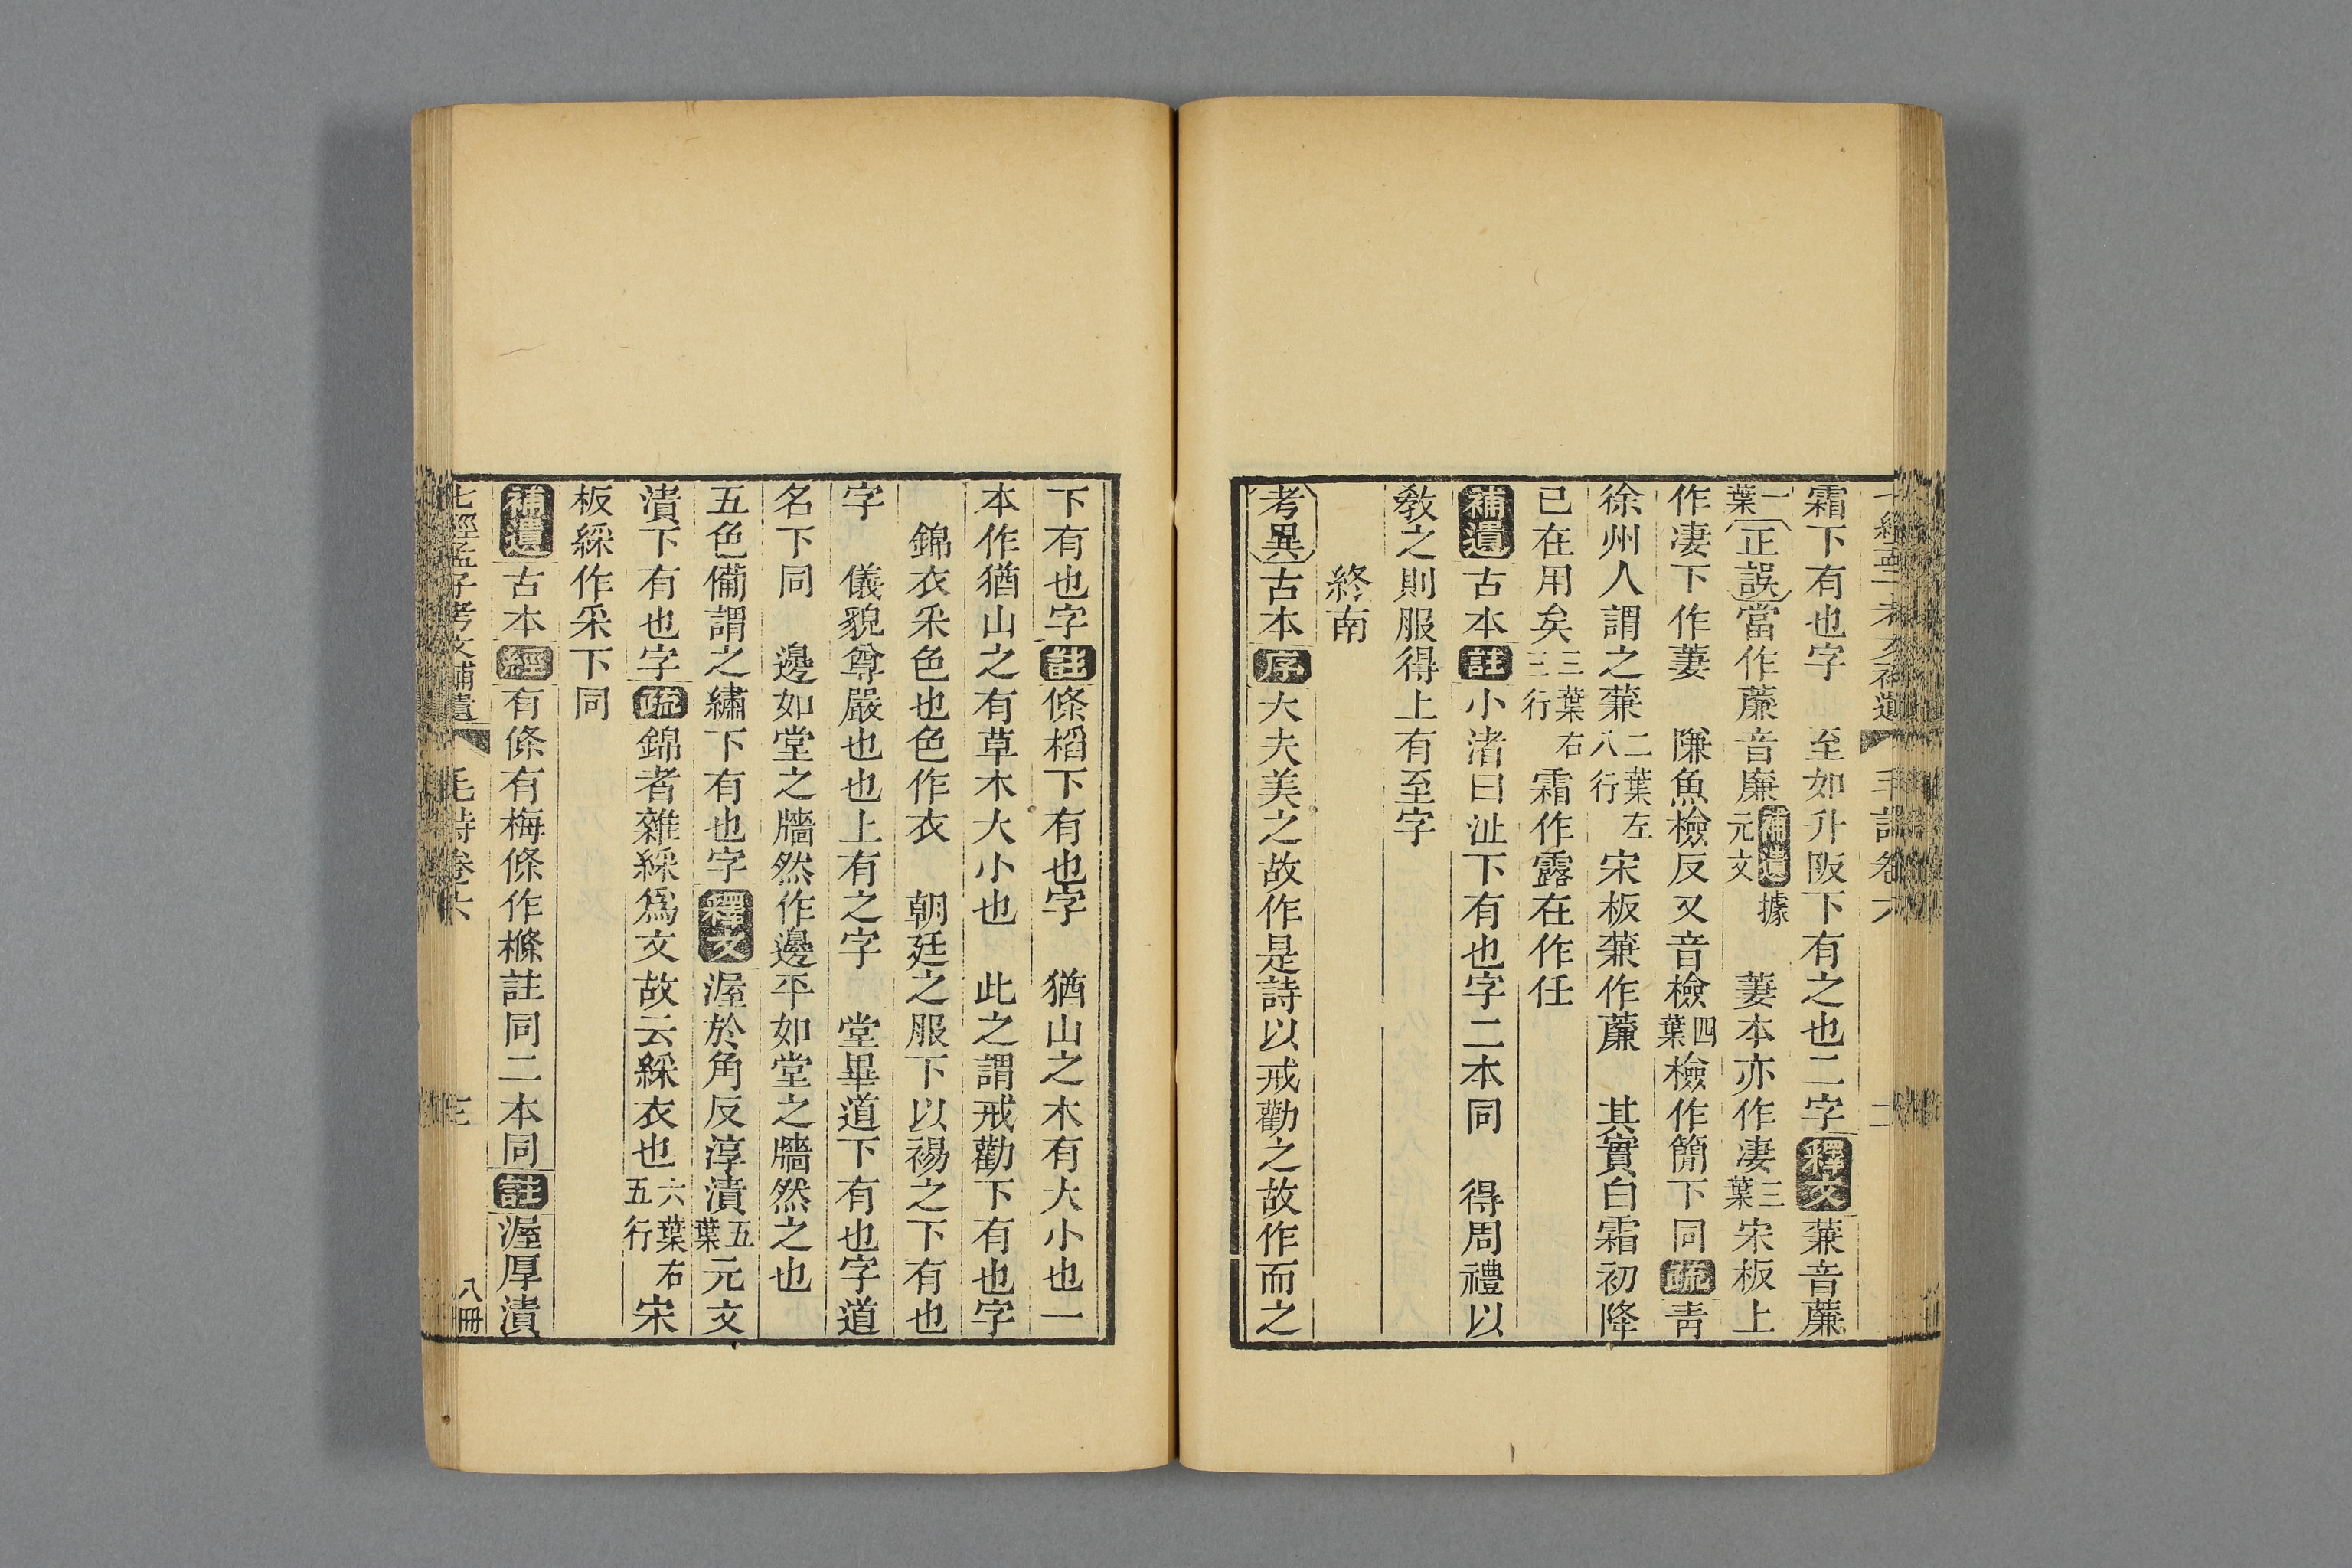 七經孟子考文補遺 毛詩卷六 二
霜下有也字 至如升阪下有之也二字釋文蒹音薕
一葉正誤當作薕音廉補遺據元文 萋本亦作凄三葉宋板上
作凄下作萋 隒魚檢反又音檢四葉檢作簡下同疏青
徐州人謂之蒹二葉左八行宋板蒹作薕 其實白霜初降
已在用矣三葉右三行霜作露在作任
補遺古本註小渚曰沚下有也字二本同 得周禮以
敎之則服得上有至字
終南
考異古本序大夫美之故作是詩以戒勸之故作而之
下有也字註條槄下有也字 猶山之木有大小也一
本作猶山之有草木大小也 此之謂戒勸下有也字
錦衣采色也色作衣 朝廷之服下以裼之下有也
字 儀貌尊嚴也也上有之字 堂畢道下有也字道
名下同 邊如堂之牆然作邊平如堂之牆然之也
五色備謂之繡下有也字釋文渥於角反淳漬五葉元文
漬下有也字疏錦者雜綵爲文故云綵衣也六葉右五行宋
板綵作采下同
補遺古本經有條有梅條作樤註同二本同註渥厚漬
七經孟子考文補遺 毛詩卷六 三 八冊